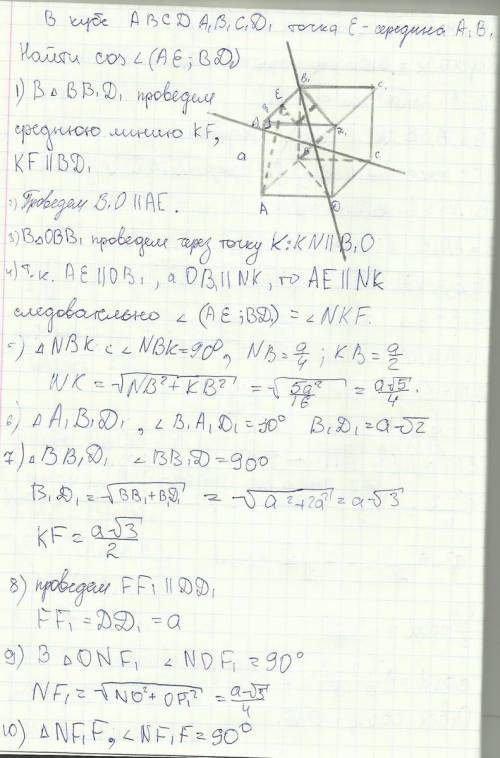 В кубе ABCDA₁B₁C₁D₁ точка E-середина A₁B₁
Найти cos∠(AE; BD₁)
1) В △BB₁D₁ проведем
среднюю линию KF,
KF || BD₁
2) Проведем B₁O || AE.
3) В △OBB₁ проведем через точку K: KN || B₁O
4) т.к. AE || OB₁, а OB || NK, то AE || NK
следовательно ∠(AE; BD₁) = ∠NKF.
5) △NBK с ∠NBK=90°, NB=a/4; KB=a/2
NK = √(NB²+KB²) = √(5a²/16) = a√5/4.
6) △A₁B₁D₁, ∠B₁A₁D₁=90° B₁D₁=a√2
7) △BB₁D₁ ∠BB₁D=90°
B₁D₁=√(BB₁+B₁D₁²) = √(a²+2a²) = a√3
KF = a√3/2
8) проведем FF₁ || DD₁
FF₁ = DD₁ = a
9) В △ONF₁ ∠NOF₁=90°
NF₁=√(NO²+OF₁²) = a√5/4
10) △NF₁F, ∠NF₁F=90°
E
B₁
C₁
a
B
C
A
D